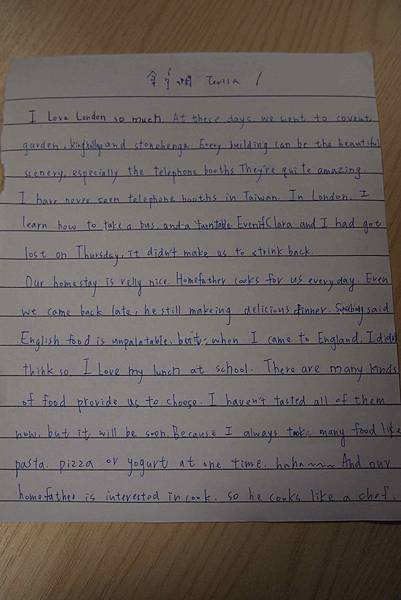 Teresa 1
I Love London so much. At these days, we went to covent
garden, and stonehenge. Every building can be the beautiful
scenery, especially the telephone booths They're quite amazing.
I have never seen telephone booths in Taiwan. In London, I
learn how to take a bus, and a Even if Clara and I had got
lost on Thursday, it didn't make us to shrink back.
Our homestay is relly nice. Homefather cooks for us everyday. Even
we came back late, he still makeing delicious dinner. said
English food is unpalatable, but, when I came to England, I didn't
think so. I Love my lunch at school. There are many kinds
of food provide us to choose. I haven't tasted all of them
now, but it will be soon. Because I always took many food like
pasta, pizza or yogurt at one time. haha~~~ And our
homefather is interested in cook, so he cooks like a chef.